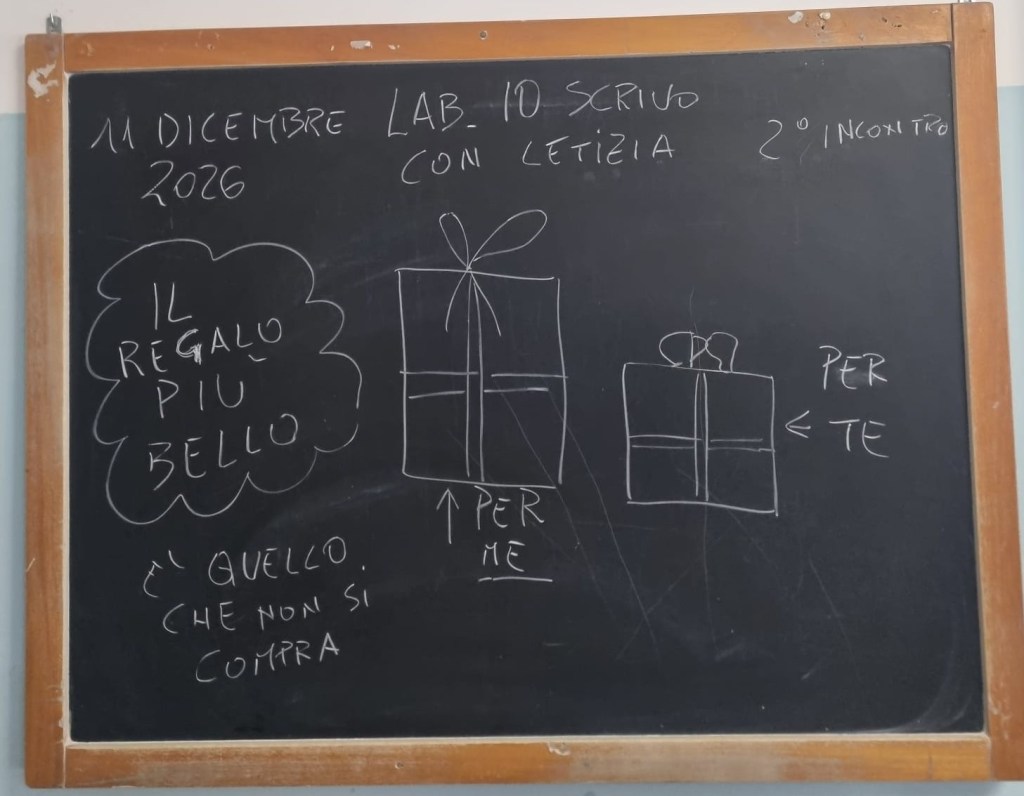 11 DICEMBRE
2026
LAB. IO SCRIVO
CON LETIZIA
2° INCONTRO
IL
REGALO
PIÙ
BELLO
È QUELLO
CHE NON SI
COMPRA
↑ PER
ME
PER
← TE